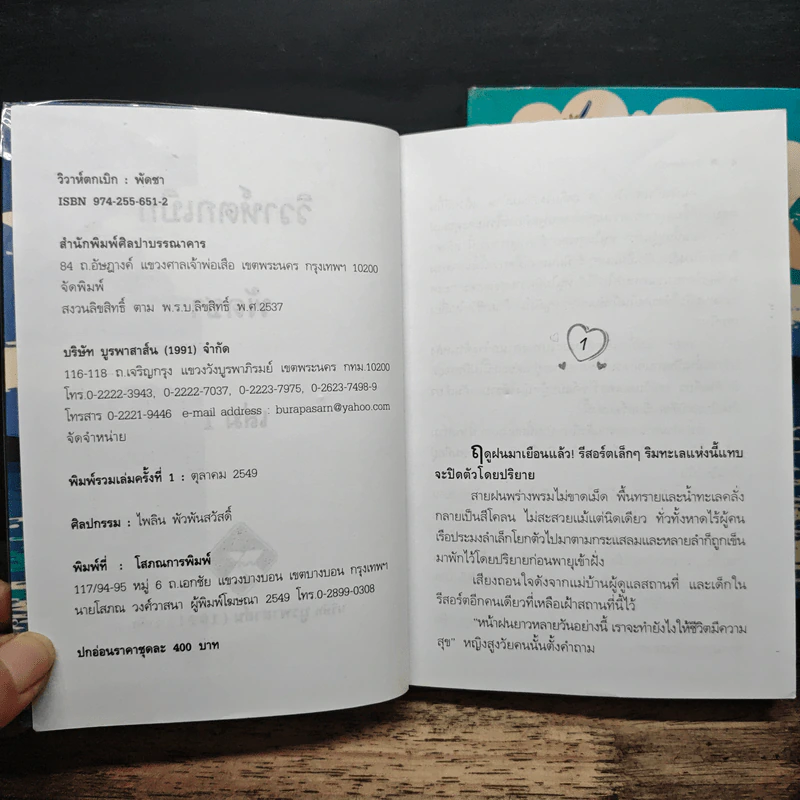 วิวาห์ตกเบิก : พัดชา
ISBN 974-255-651-2
สำนักพิมพ์ศิลปาบรรณาคาร
84 ถ.อัษฎางค์ แขวงศาลเจ้าพ่อเสือ เขตพระนคร กรุงเทพฯ 10200
จัดพิมพ์
สงวนลิขสิทธิ์ ตาม พ.ร.บ.ลิขสิทธิ์ พ.ศ.2537
บริษัท บูรพาสาส์น (1991) จำกัด
116-118 ถ.เจริญกรุง แขวงวังบูรพาภิรมย์ เขตพระนคร กทม.10200
โทร.0-2222-3943, 0-2222-7037, 0-2223-7975, 0-2623-7498-9
โทรสาร 0-2221-9446 e-mail address : burapasarn@yahoo.com
จัดจำหน่าย
พิมพ์รวมเล่มครั้งที่ 1 : ตุลาคม 2549
ศิลปกรรม : ไพลิน พัวพันสวัสดิ์
พิมพ์ที่ : โสภณการพิมพ์
117/94-95 หมู่ 6 ถ.เอกชัย แขวงบางบอน เขตบางบอน กรุงเทพฯ
นายโสภณ วงศ์วาสนา ผู้พิมพ์โฆษณา 2549 โทร.0-2899-0308
ปกอ่อนราคาชุดละ 400 บาท
1
ฤดูฝนมาเยือนแล้ว! รีสอร์ตเล็กๆ ริมทะเลแห่งนี้แทบ
จะปิดตัวโดยปริยาย
สายฝนพร่างพรมไม่ขาดเม็ด พื้นทรายและน้ำทะเลคลั่ง
กลายเป็นสีโคลน ไม่สะสวยแม้แต่นิดเดียว ทั่วทั้งหาดไร้ผู้คน
เรือประมงลำเล็กโยกตัวไปมาตามกระแสลมและหลายลำก็ถูกเข็น
มาพักไว้โดยปริยายก่อนพายุเข้าฝั่ง
เสียงถอนใจดังจากแม่บ้านผู้ดูแลสถานที่ และเด็กใน
รีสอร์ตอีกคนเดียวที่เหลือเฝ้าสถานที่นี้ไว้
"หน้าฝนยาวหลายวันอย่างนี้ เราจะทำยังไงให้ชีวิตมีความ
สุข" หญิงสูงวัยคนนั้นตั้งคำถาม